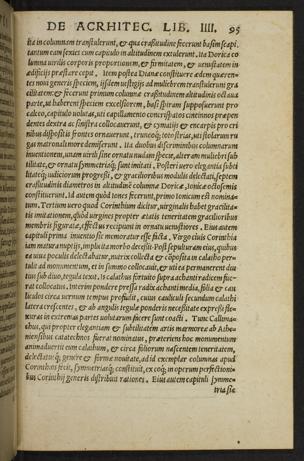 DE ACRHITEC. LIB. IIII. 95
ita in columnam transtulerunt, & qua crassitudine fecerunt basim scapi,
tantum eam sexies cum capitulo in altitudinem extulerunt. ita Dorica co
lumna virilis corporis proportionem, & firmitatem, & uenustatem in
ædificijs præstare cœpit. Item postea Dianæ constituere ædem quæren-
tes noua generis speciem, ijsdem uestigijs ad muliebrem transtulerunt gra
cilitatem: & fecerunt primum columnæ crassitudinem altitudinis octaua
parte, ut haberent speciem excelsiorem, basi spiram supposuerunt pro
calceo, capitulo uolutas, uti capillamento concrispatos cincinnos præpen
dentes dextra ac sinistra collocauerunt, & cymatijs & encarpis pro cri
nibus dispositis frontes ornauerunt, truncoq; toto strias, uti stolarum ru
gas matronali more demiserunt. Ita duobus discriminibus columnarum
inuentionem, unam uirili sine ornatu nudam specie, alteram muliebri sub
tilitate, & ornatu symmetriaq; sunt imitati. Posteri uero elegantia subti
litateq; iudiciorum progressi, & gracilioribus modulis delectati, septem
crassitudinis diametros in altitudinem columnæ Doricæ, Ionicæ octo semis
constituerunt. id autem quod Iones fecerunt, primo Ionicum est nomina
tum. Tertium uero quod Corinthium dicitur, uirginalis habet gracilita
tis imitationem, quòd uirgines propter ætatis teneritatem gracilioribus
membris figuratæ, effectus recipiunt in ornatu uenustiores. Eius autem
capituli prima inuentio sic memoratur esse facta. Virgo ciuis Corinthia
iam matura nuptijs, implicita morbo decessit. Post sepulturam eius, quibus
ea uiua poculis delectabatur, nutrix collecta & composita in calatho per-
tulit ad monumentum, et in summo collocauit, & uti ea permanerent diu
tius sub diuo, tegula texit. Is calathus fortuito supra achanti radicem fue-
rat collocatus. Interim pondere pressa radix achanti media, folia & cau
liculos circa uernum tempus profudit, cuius cauliculi secundum calathi
latera crescentes, & ab angulis tegulæ ponderis necessitate expressi fle-
xuras in extremas partes uolutarum facere sunt coacti. Tunc Callima-
chus, qui propter elegantiam & subtilitatem artis marmoreæ ab Athe-
niensibus catatechnos fuerat nominatus, præteriens hoc monumentum
animaduertit eum calathum, & circa foliorum nascentem teneritatem,
delectatusq; genere & formæ nouitate, ad id exemplar columnas apud
Corinthios fecit, symmetriasq; constituit, ex eoq; in operum perfectioni-
bus Corinthij generis distribuit rationes. Eius autem capituli symme-
triæ sic